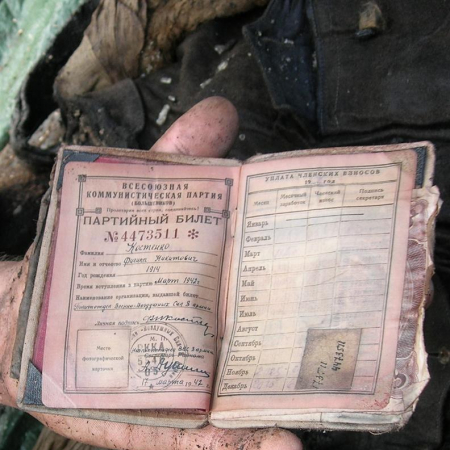 ВСЕСОЮЗНАЯ
КОММУНИСТИЧЕСКАЯ ПАРТИЯ
(БОЛЬШЕВИКОВ)
Пролетарии всех стран, соединяйтесь!
ПАРТИЙНЫЙ БИЛЕТ
№ 4473511
Фамилия Костенко
Имя и отчество Никитович
Год рождения 1914
Время вступления в партию март 1942 г.
Наименование организации, выдавшей билет
Личная подпись
Место
фотографической
карточки
РККА
17 марта 1942
УПЛАТА ЧЛЕНСКИХ ВЗНОСОВ
19 год
Месяц Месячный заработок Членский взнос Подпись секретаря
Январь
Февраль
Март
Апрель
Май
Июнь
Июль
Август
Сентябрь
Октябрь
Ноябрь
Декабрь
4473511